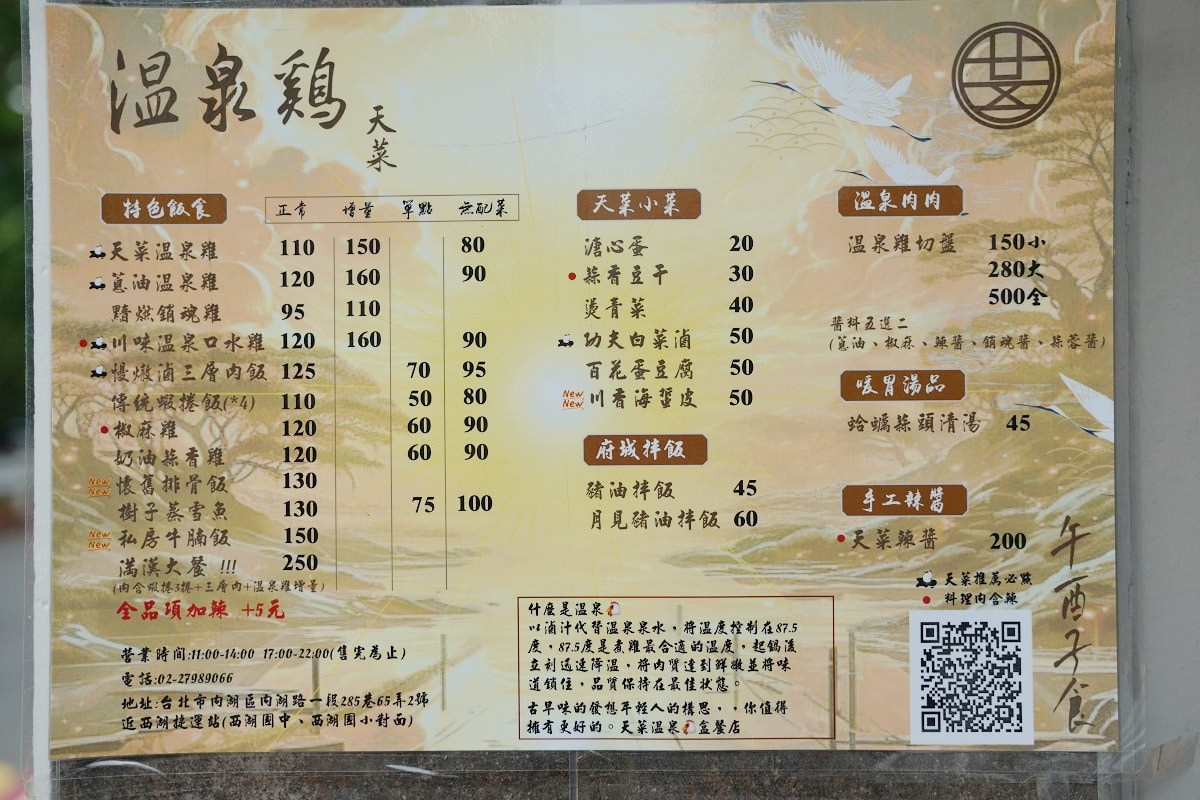 温泉鷄
天菜
特色飯食 正常 增量 單點 無配菜
天菜溫泉雞 110 150 80
蔥油溫泉雞 120 160 90
黯燃銷魂雞 95 110
川味溫泉口水雞 120 160 90
慢燉滷三層肉飯 125 70 95
傳統蝦捲飯(*4) 110 50 80
椒麻雞 120 60 90
奶油蒜香雞 120 60 90
New New 懷舊排骨飯 130
樹子蒸雪魚 130 75 100
New New 私房牛腩飯 150
滿漢大餐 !!! 250
(內含蝦捲3捲+三層肉+溫泉雞增量)
全品項加辣 +5元
營業時間:11:00-14:00 17:00-22:00(售完為止)
電話:02-27989066
地址:台北市內湖區內湖路一段285巷65弄2號
近西湖捷運站(西湖國中、西湖國小對面)
天菜小菜
溏心蛋 20
蒜香豆干 30
燙青菜 40
功夫白菜滷 50
百花蛋豆腐 50
New New 川香海蜇皮 50
府城拌飯
豬油拌飯 45
月見豬油拌飯 60
什麼是溫泉
以滷汁代替溫泉泉水，將溫度控制在87.5
度，87.5度是煮雞最合適的溫度，起鍋後
立刻迅速降溫，將肉質達到鮮嫩並將味
道鎖住，品質保持在最佳狀態。
古早味的發想年輕人的構思，，你值得
擁有更好的。天菜溫泉盒餐店
溫泉肉肉
溫泉雞切盤 150小
280大
500全
醬料五選二
(蔥油、椒麻、辣醬、銷魂醬、蒜蓉醬)
暖胃湯品
蛤蠣蒜頭清湯 45
手工辣醬
天菜辣醬 200
天菜推薦必點
料理內含辣
午酉子食